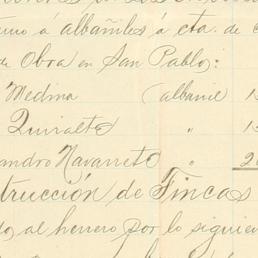 á albañiles á cta. de
de Obra en San Pablo:
Medina (albañil
Quiralte "
Navarrete "
trucción de Fincas
al herrero por lo siguien